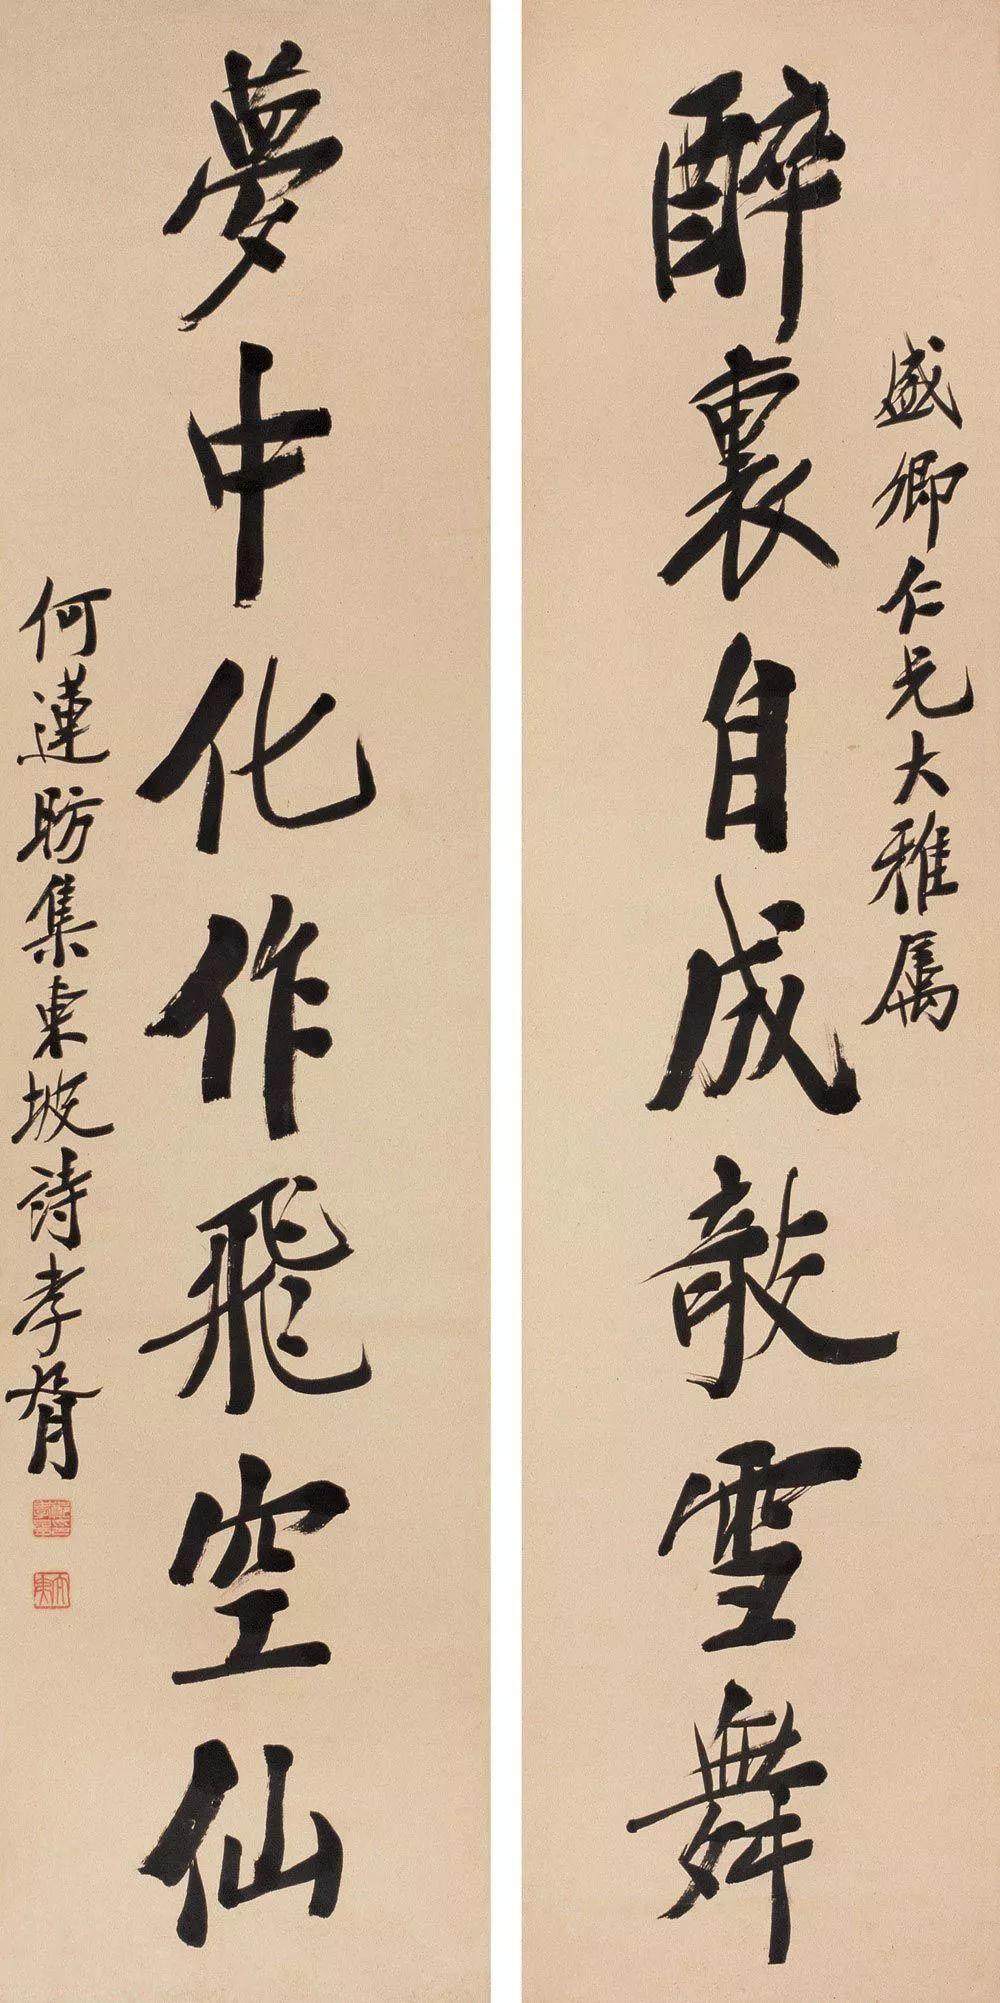 盛卿仁兄大雅属
醉裏自成敲雪舞
夢中化作飛空仙
何蓮昉集東坡詩孝胥
太夷